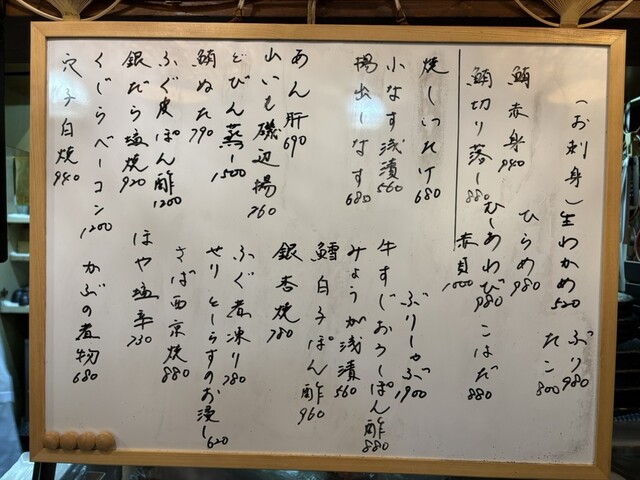 (お刺身)
生わかめ 520
ぶり 980
たこ 800
鮪赤身 940
ひらめ 980
鮪切り落し 880
むしあわび 980
こはだ 880
赤貝 1000
焼しいたけ 680
ぶりしゃぶ 1900
小なす浅漬 560
牛すじおろしぽん酢 880
揚出しなす 680
みょうが浅漬 560
鱈白子ぽん酢 960
あん肝 690
銀杏焼 780
山いも磯辺揚 760
ふぐ煮凍り 780
どびん蒸し 1500
せりとしらすのお浸し 620
鮪ぬた 790
さば西京焼 880
ふぐ皮ぽん酢 1200
ほや塩辛 730
銀だら塩焼 920
くじらベーコン 1200
かぶの煮物 680
穴子白焼 940